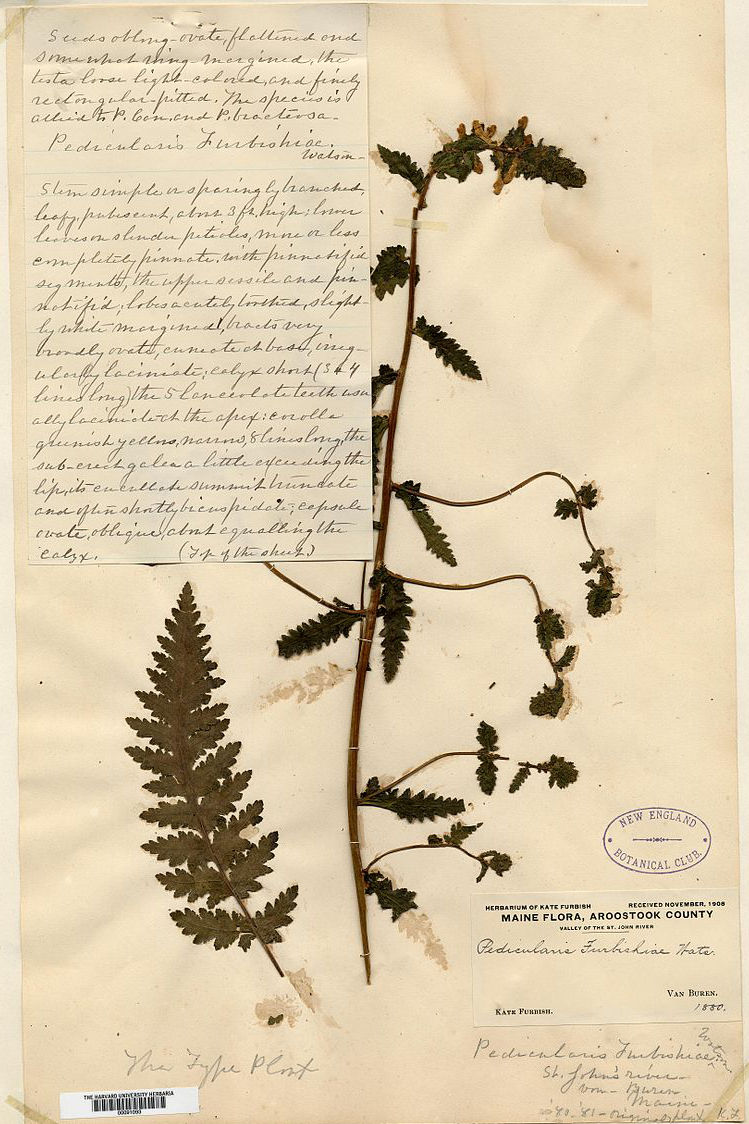 Seeds oblong-ovate, flattened and
somewhat wing-margined, the
testa loose light-colored, and finely
rectangular-pitted. The species is
allied to P. Can. and P. bracteosa-
Pedicularis Furbishiae.
Watson-
Stem simple or sparingly branched,
leafy, pubescent, about 3 ft. high; lower
leaves on slender petioles, more or less
completely pinnate, with pinnatifid
segments, the upper sessile and pin-
natifid; lobes acutely toothed, slight-
ly white margined, bracts very
broadly ovate, cuneate at base, irreg-
ularly laciniate; calyx short (3 & 4
lines long) the 5 lanceolate teeth usu
ally laciniate at the apex: corolla
greenish yellow, narrow, 8 lines long, the
sub-erect galea a little exceeding the
lip, its cucullate summit truncate
and often shortly bicuspidate; capsule
ovate, oblique, about equalling the
calyx. (Top of the sheet.)
NEW ENGLAND
BOTANICAL CLUB.
HERBARIUM OF KATE FURBISH RECEIVED NOVEMBER, 1908
MAINE FLORA, AROOSTOOK COUNTY
VALLEY OF THE ST. JOHN RIVER
Pedicularis Furbishiae Wats.
VAN BUREN.
KATE FURBISH. 1880.
The Type Plant
Pedicularis Furbishiae Watson
St. John's river-
Van-Buren
Maine-
'80, '81- original plant K.F.
THE HARVARD UNIVERSITY HERBARIA
00091093